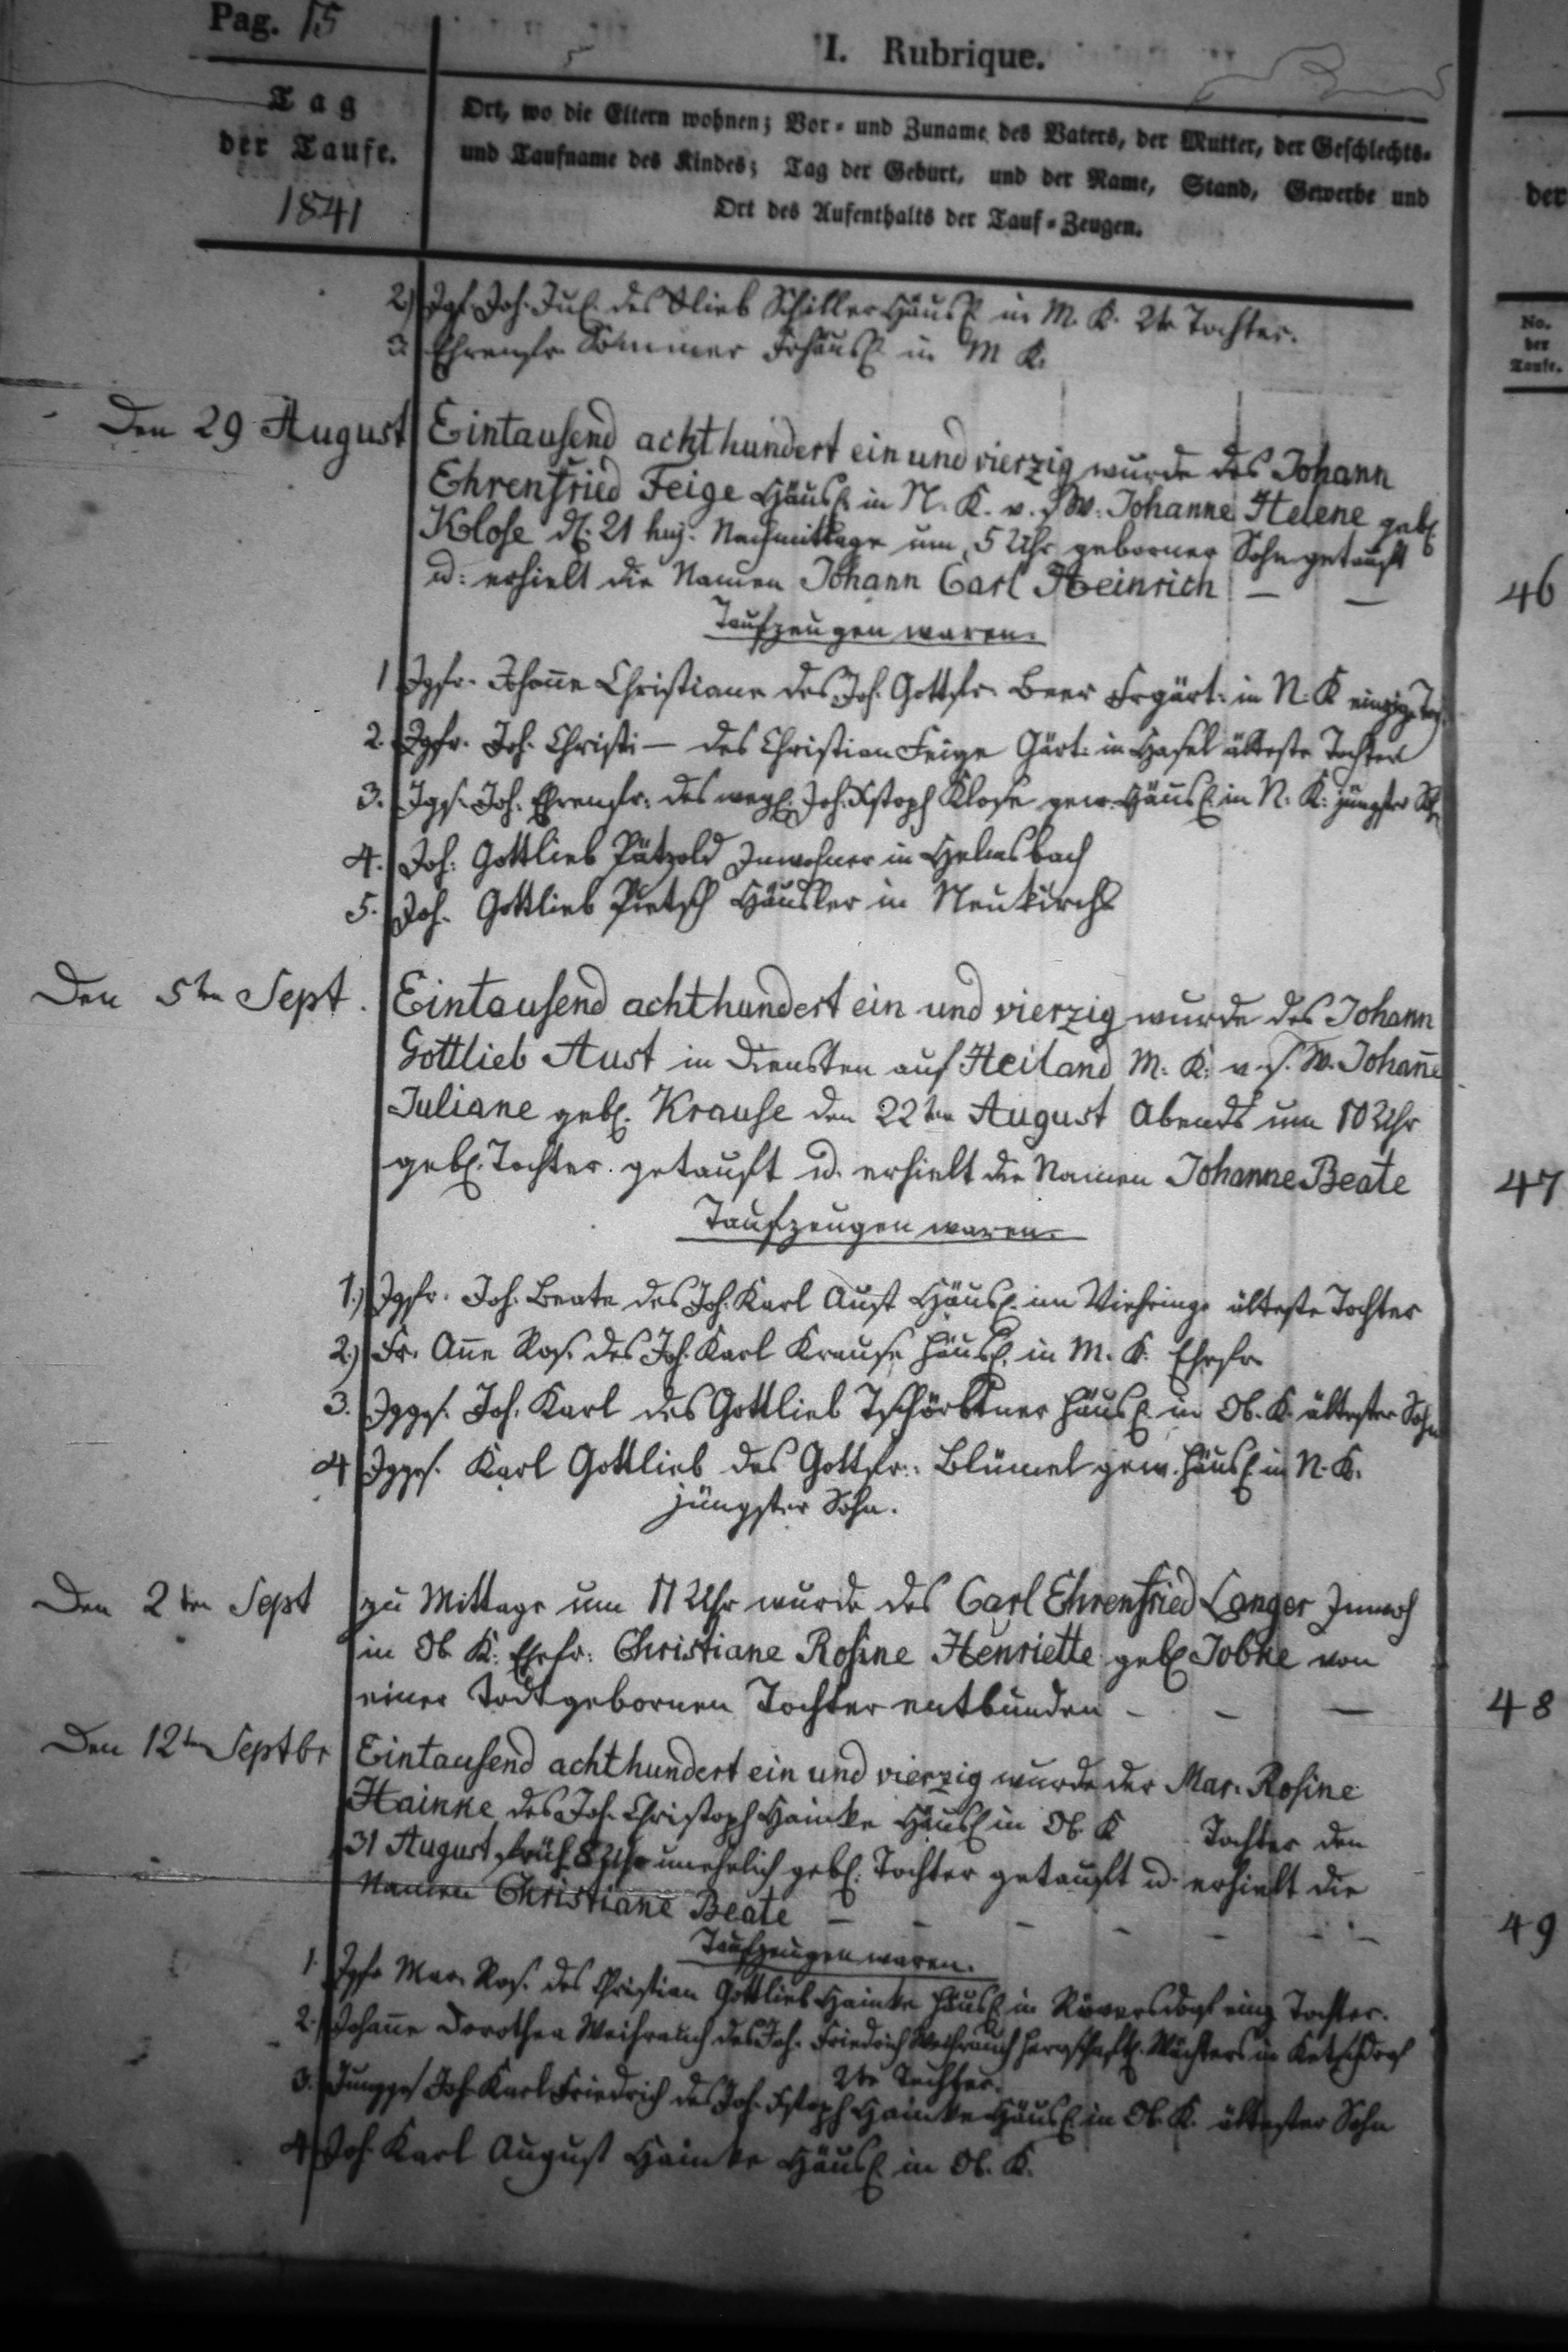 Pag. 15
I. Rubrique.
Tag
der Taufe.
1841
Ort, wo die Eltern wohnen; Vor- und Zuname des Vaters, der Mutter, der Geschlechts-
und Taufname des Kindes; Tag der Geburt, und der Name, Stand, Gewerbe und
Ort des Aufenthalts der Tauf-Zeugen.
der
No.
der
Taufe.
2) Igf. Joh. Jul. des Schiller Häusl. in M. K. 2te Tochter.
3. Ehrenfr. Sommer Frhäusl. in M K.
Den 29 August Eintausend achthundert ein und vierzig wurde des Johann
Ehrenfried Feige Häusl. in N. K. v. s. W. Johanne Helene geb.
Klose d. 21 huj. Nachmittags um 5 Uhr geborner Sohn getauft
u: erhielt die Namen Johann Carl Heinrich — —
46
Taufzeugen waren.
1 Jgfr. Johan̄e Christiane des Joh. Gottfr. Beer Frgärt: in N. K einzige Toch.
2. Jgfr. Joh. Christi— des Christian Feige Gärt: in Hasel älteste Tochter
3. Jggs. Joh. Ehrenfr. des weyl. Joh. Xstoph Klose gew. Häusl. in N. K. jüngster Sohn
4. Joh: Gottlieb Pätzold Inwohner in Helmsbach
5. Joh. Gottlieb Pietsch Häusler in Neukirch
Den 5ten Sept. Eintausend achthundert ein und vierzig wurde des Johann
Gottlieb Aust in Diensten auf Heiland M. K. v. s. W. Johan̄e
Juliane geb. Krause den 22ten August Abends um 10 Uhr
geb. Tochter getauft u. erhielt die Namen Johanne Beate
47
Taufzeugen waren.
1.) Jgfr. Joh. Beate des Joh. Karl Aust Häusl. im Viehringe älteste Tochter
2.) Fr. An̄e Ros. des Joh. Karl Krause Häusl. in M. K. Ehefr.
3. Jggs. Joh. Karl des Gottlieb Tschörtner Häusl. in Ob. K. ältester Sohn
4 Jggs. Karl Gottlieb des Gottfr. Blümel gew. Häusl. in N. K.
jüngster Sohn.
Den 2ten Sept zu Mittage um 11 Uhr wurde des Carl Ehrenfried Langer Inwoh
in Ob K. Ehefr: Christiane Rosine Henriette geb. Jobke von
einer todtgebornen Tochter entbunden - - —
48
Den 12ten Septbr Eintausend achthundert ein und vierzig wurde der Mar. Rosine
Hainke des Joh. Christoph Hainke Häusl in Ob. K Tochter den
31 August früh 8 Uhr unehelich geb. Tochter getauft u. erhielt die
Namen Christiane Beate - - - - - - -
49
Taufzeugen waren.
1. Jgfr Mar. Ros. des Christian Gottlieb Hainke Häusl in Röversdorf einz Tochter.
2. Johan̄e Dorothea Weihrauch des Joh. Friedrich Weihrauch herrschaftl. Wächters in Ketschdorf
2te Tochter.
3. Junggs Joh Karl Friedrich des Joh. Xstoph Hainke Häusl in Ob. K. ältester Sohn
4 Joh. Karl August Hainke Häusl. in Ob. K.